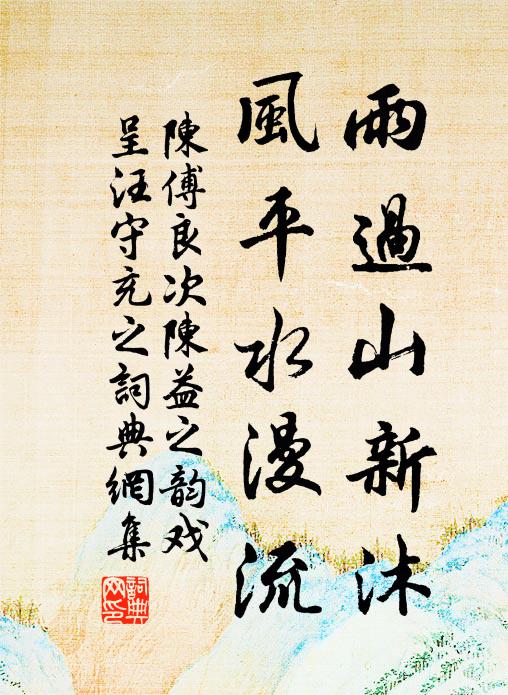 雨過山新沐
風平水漫流
陳傅良次陳益之韵戏
呈汪守充之詞典網集
詞典网印